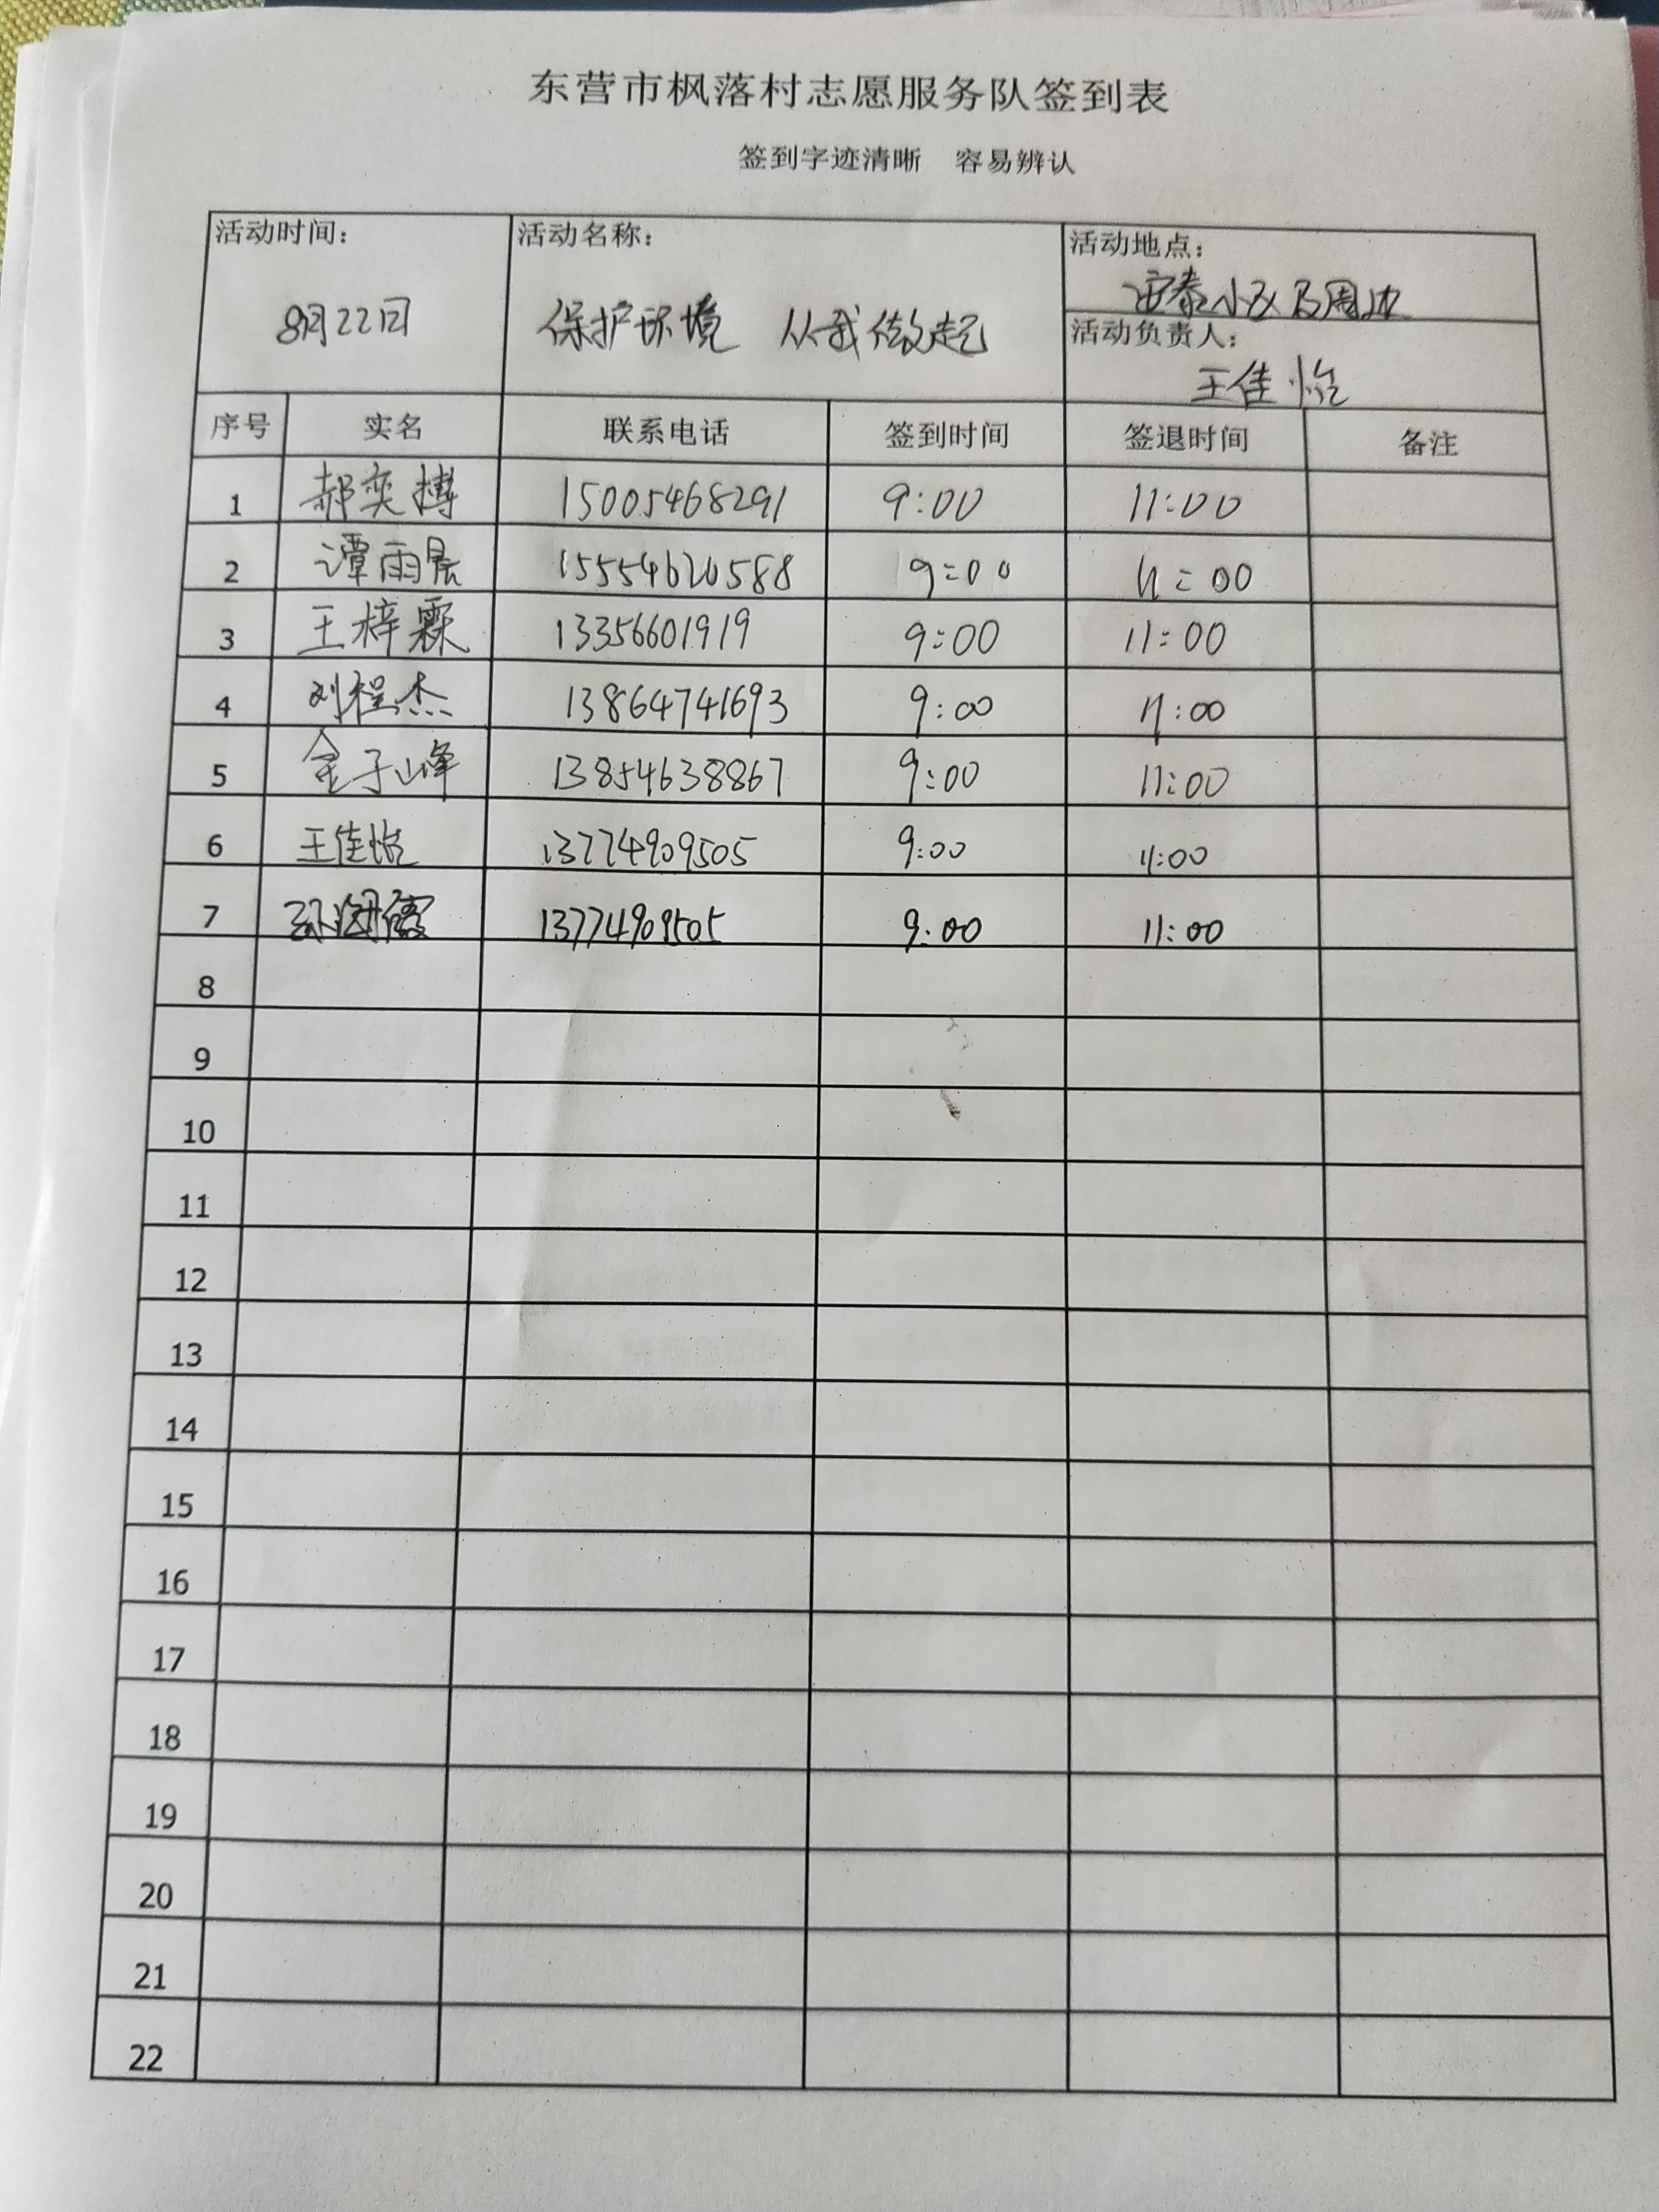 东营市枫落村志愿服务队签到表
签到字迹清晰 容易辨认
活动时间: 活动名称: 活动地点:
8月22日 保护环境 从我做起 安泰小区及周边
活动负责人:
王佳怡
序号 实名 联系电话 签到时间 签退时间 备注
1 郝奕搏 15005468291 9:00 11:00
2 谭雨晨 15554620588 9:00 11:00
3 王梓霖 13356601919 9:00 11:00
4 刘程杰 13864741693 9:00 11:00
5 金子峰 13854638867 9:00 11:00
6 王佳怡 13774909505 9:00 11:00
7 13774909505 9:00 11:00
8
9
10
11
12
13
14
15
16
17
18
19
20
21
22